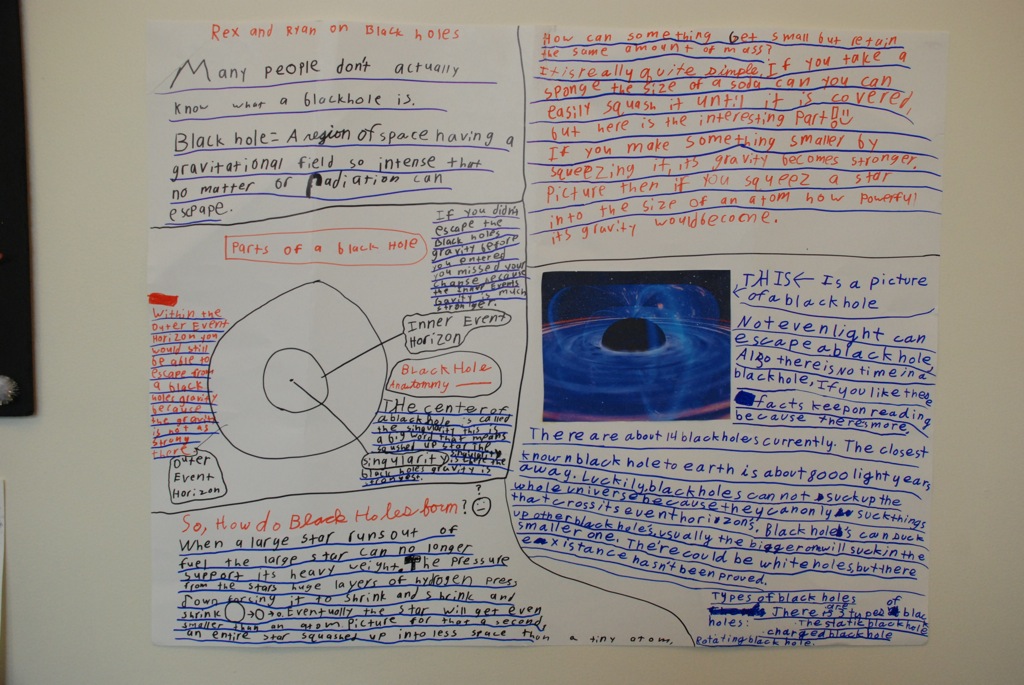 Rex and Ryan on Black holes
Many people don't actually
know what a blackhole is.
Black hole= A region of space having a
gravitational field so intense that
no matter or radiation can
escpape.
Parts of a black Hole
If you didn't
escape the
Black holes
gravity before
you entered
you missed your
because
the inner Event's
gavity is much
stronger.
Within the
Outer Event
Horizon you
would still
be able to
escape from
a black
holes gravity
because
the gravity
is not as
strong
there
Inner Event
Horizon
Black Hole
THe center of
a black hole is called
the singularity this is
a big word that means
squashed up star the
singularity is where the
black holes gravity is
Singularity
Outer
Event
Horizon
So, How do Black Holes form? ?
When a large star runs out of
fuel the large star can no longer
support its heavy weight. The pressure
from the stars huge layers of hydrogen press
down forsing it to shrink and shrink and
shrink Eventually the star will get even
smaller than an atom. Picture for that a second
an entire star squashed up into less space than a tiny atom.
How can something Get small but retain
the same amount of mass?
It is really quite simple. If you take a
sponge the size of a soda can you can
easily squash it until it is covered,
but here is the interesting Part!!
If you make something smaller by
squeezing it, its gravity becomes stronger.
Picture then if you squeez a star
into the size of an atom how powerful
its gravity would become.
THIS← Is a picture
of a black hole
Not even light
escape a black hole
Also there is no time in a
black hole. If you like these
facts keep on reading
because theres more
There are about 14 black holes currently. The closest
known black hole to earth is about 8000 light years
away. Luckily, black holes can not suck up the
whole universe because they can only suck things
that cross its event horizons. Black holes can suck
up other black holes, usually the bigger on will suck in the
smaller one. There could be white holes, but there
existance hasn't been proved.
Types of black holes
There are 3 types of black
holes: The static black hole
charged black hole
Rotating black hole.